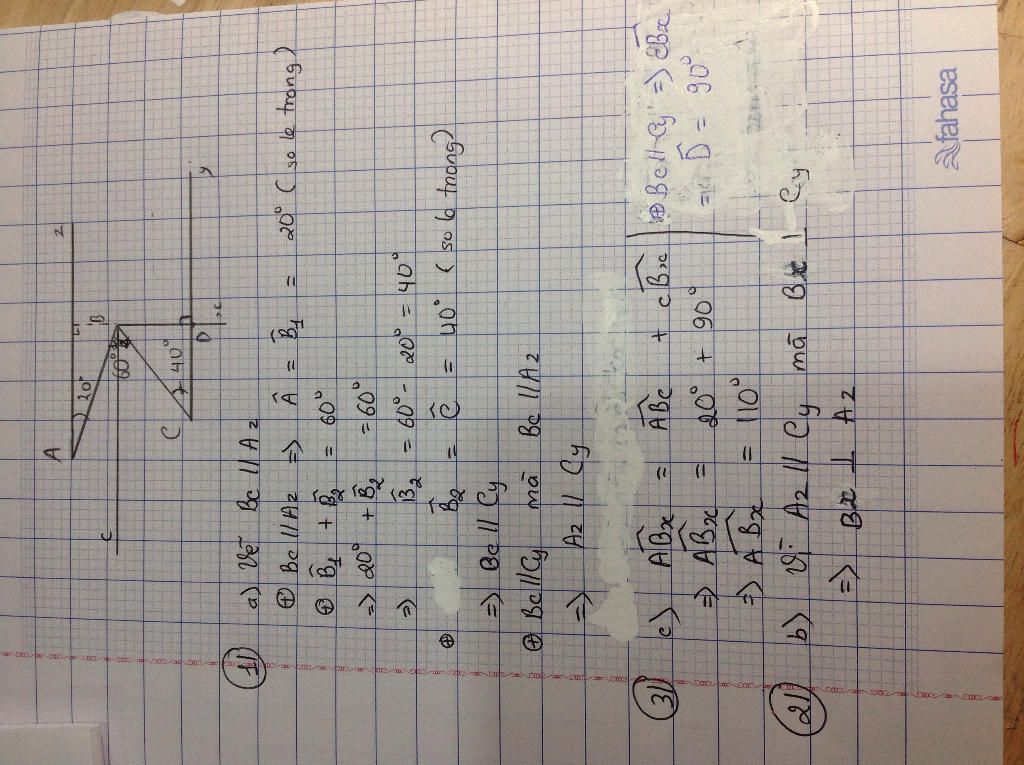 A
z
20°
B
60°
C
40°
D
x
y
c
1) a) Vẽ Bc // Az
⊕ Bc // Az => Â = B̂₁ = 20° (so le trong)
⊕ B̂₁ + B̂₂ = 60°
=> 20° + B̂₂ = 60°
=> B̂₂ = 60° - 20° = 40°
⊕ B̂₂ = Ĉ = 40° (so le trong)
=> Bc // Cy
⊕ Bc // Cy mà Bc // Az
=> Az // Cy
3) c) ABx = ABc + cBx
=> ABx = 20° + 90°
=> ABx = 110°
⊕ Bc // Cy => cBx
= D̂ = 90°
2) b) Vì Az // Cy mà Bx ⊥ Cy
=> Bx ⊥ Az
fahasa